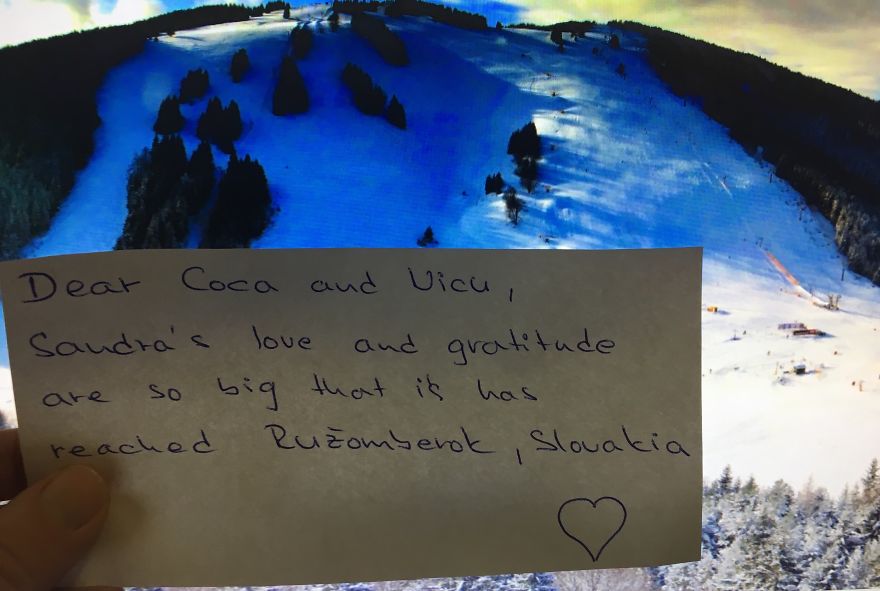 Dear Coca and Vicu,
Sandra's love and gratitude
are so big that it has
reached Ružomberok, Slovakia